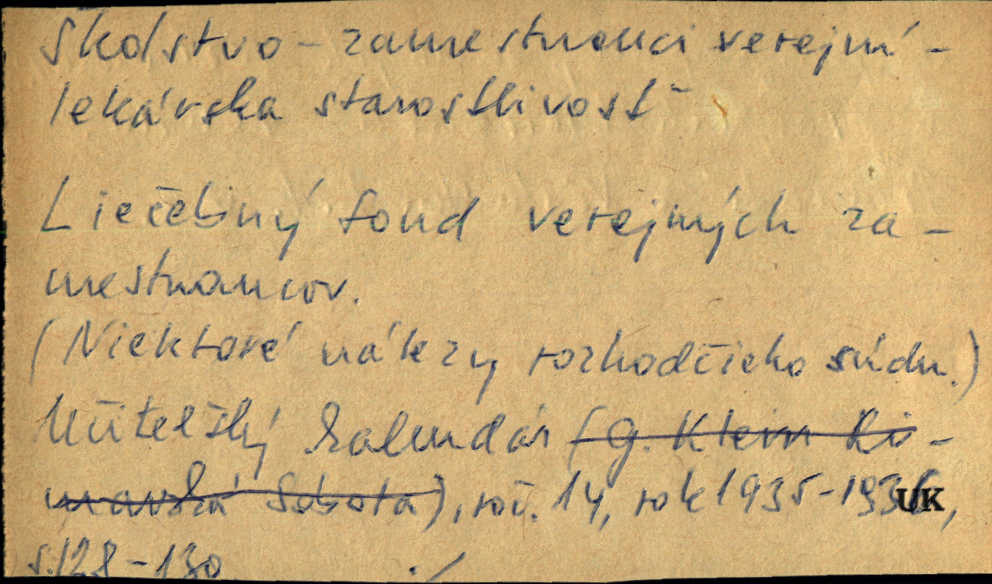 Školstvo - zamestnanci verejní -
lekárska starostlivosť
Liečebný fond verejných za -
mestnancov.
(Niektoré nálezy rozhodčieho súdu.)
Učiteľský kalendár (G. Klein Ri -
mavská Sobota), roč. 14, rok 1935-1936,
UK
s.128-130 ./